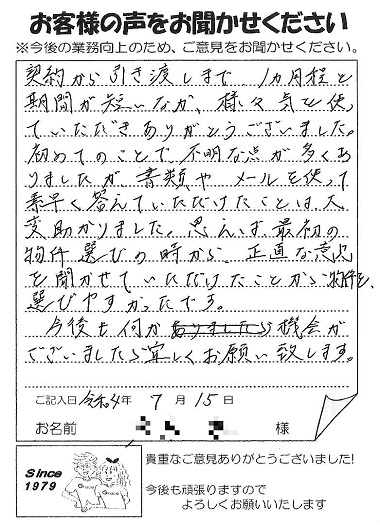 お客様の声をお聞かせください
※今後の業務向上のため、ご意見をお聞かせください。
契約から引き渡しまで 1ヵ月程と
期間が短いなか、様々気を使っ
ていただきありがとうございました。
初めてのことで不明な点が多くあ
りましたが 書類や メールを使って
素早く答えていただけたことは大
変助かりました。思えば最初の
物件選びの時から 正直な意見
を聞かせていただけたことから物件を、
選びやすかったです。
今後も何か 機会が
ございましたら宜しくお願い致します。
ご記入日 令和4年 7月 15日
お名前 様
Since
1979
貴重なご意見ありがとうございました!
今後も頑張りますので
よろしくお願いいたします